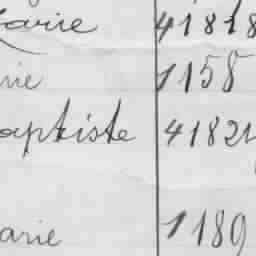 Marie 41818
rie 1158
aptiste 41821
arie 1189